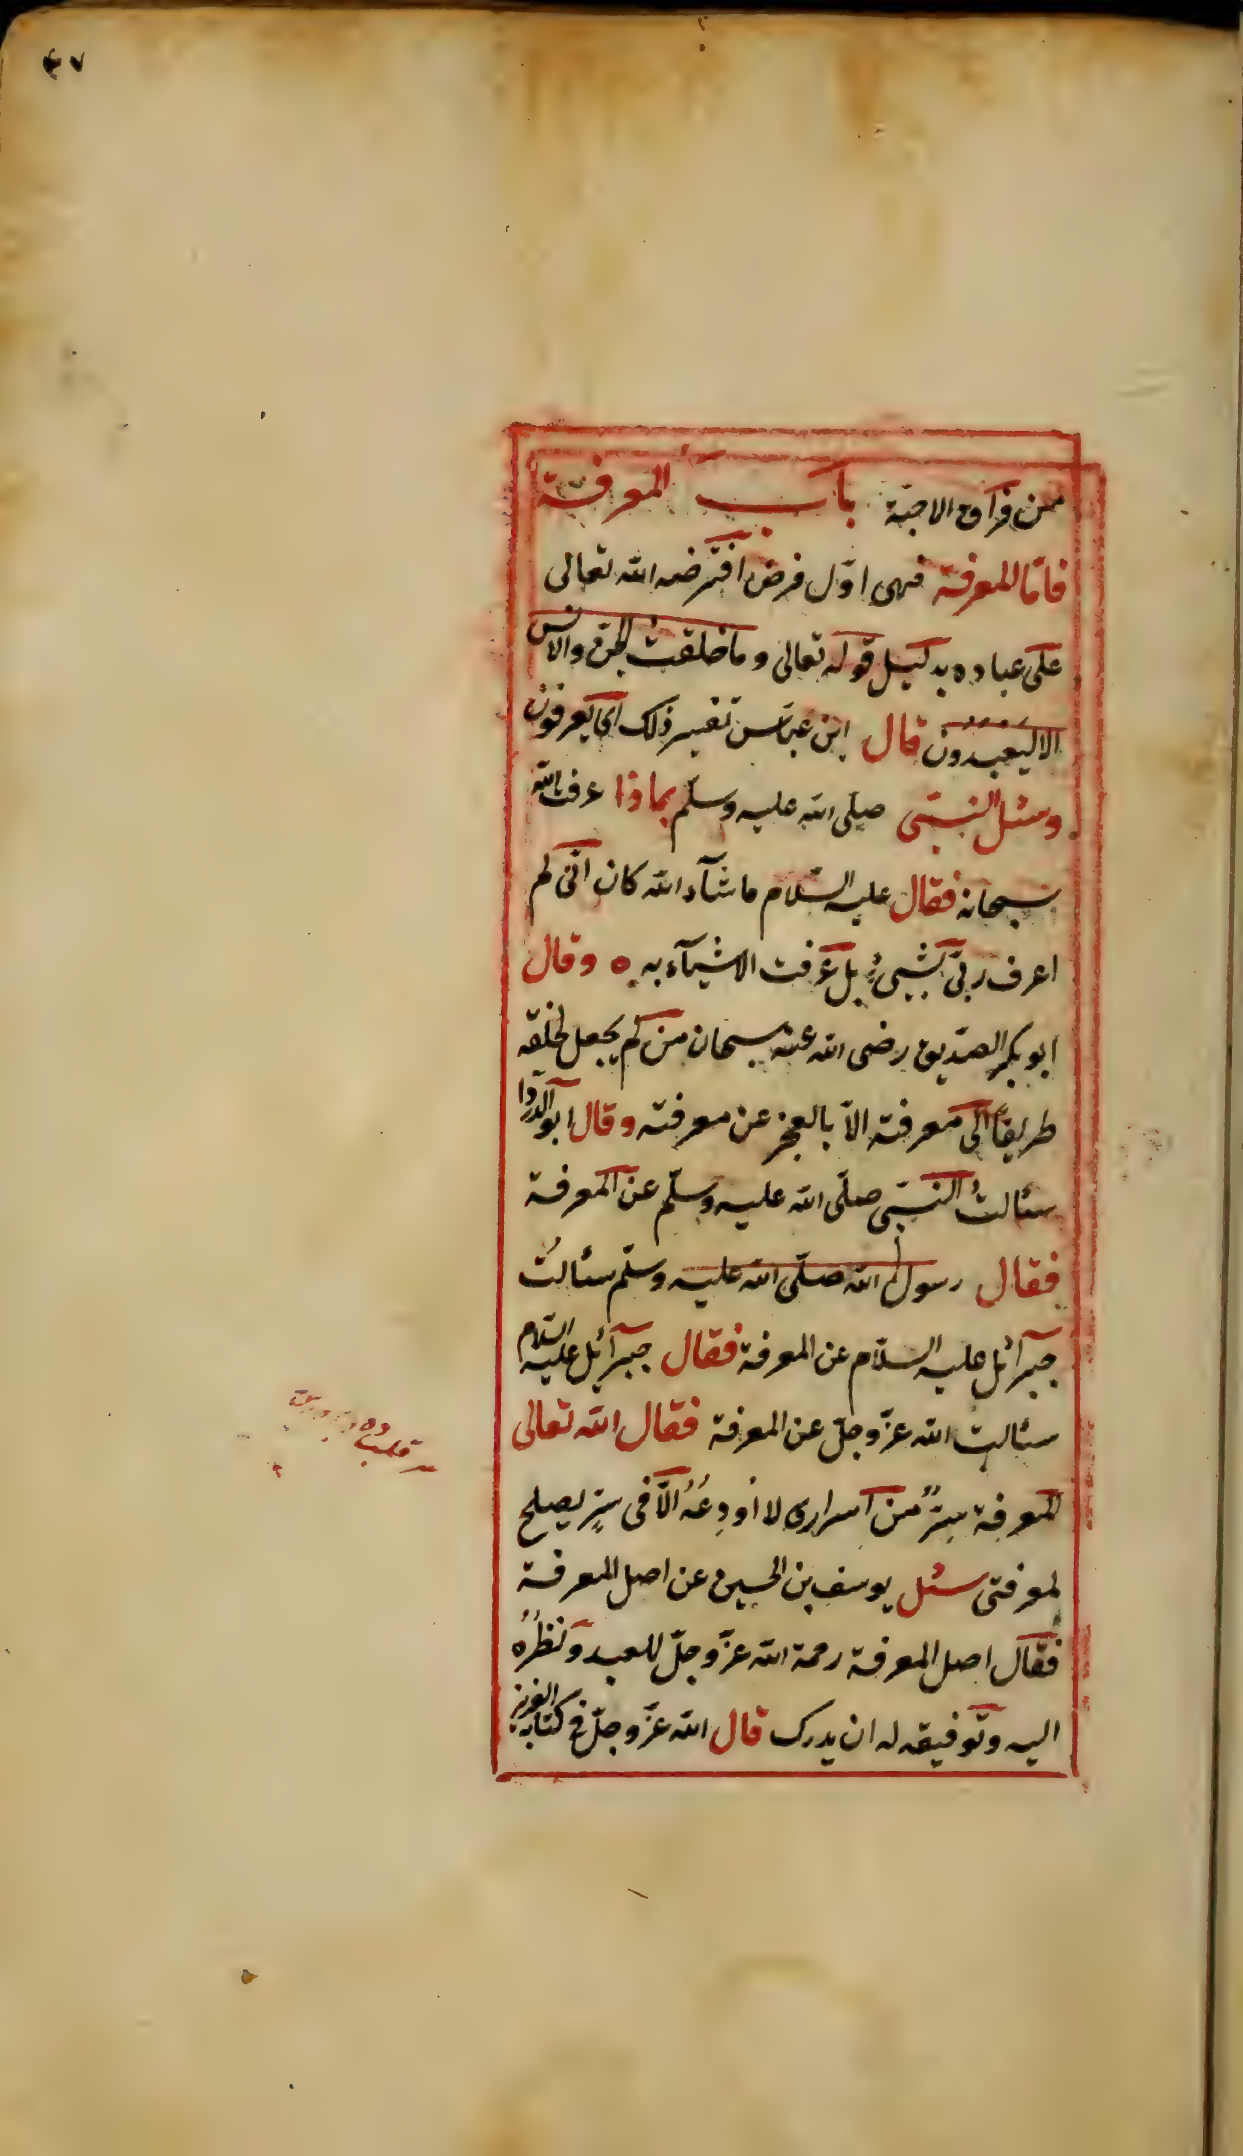 ٤٧
من فراق الاحبّة باب المعرفة
فامّا المعرفة فهى اوّل فرض افترضه الله تعالى
على عباده بدليل قوله تعالى وما خلقت الجن والانس
الا ليعبدون قال ابن عباس تفسير ذلك اى يعرفون
وسئل النبىّ صلّى الله عليه وسلّم بماذا عرفت الله
سبحانه فقال عليه السّلام ما شآء الله كان انّى لم
اعرف ربّى بشيئ بل عرفت الاشيآء به ه وقال
ابو بكر الصدّيق رضى الله عنه سبحان من لم يجعل لخلقه
طريقاً الى معرفته الاّ بالعجز عن معرفته وقال ابو الدردا
سئالتُ النبىّ صلّى الله عليه وسلّم عن المعرفة
فقال رسول الله صلّى الله عليه وسلّم سئالتُ
جبرآئل عليه السلام عن المعرفة فقال جبرآئيل عليه السّلام
سئالت الله عزّ وجلّ عن المعرفة فقال الله تعالى
المعرفة سِرٌّ من اسرارى لا أودِعُهُ الاّ فى سِرٍّ يصلح
لمعرفتى سئل يوسف بن الحسين عن اصل المعرفة
فقال اصل المعرفة رحمة الله عزّ وجلّ للعبد ونظرُه
اليه وتوفيقه له ان يدرك قال الله عزّ وجلّ فى كتابه العزيز